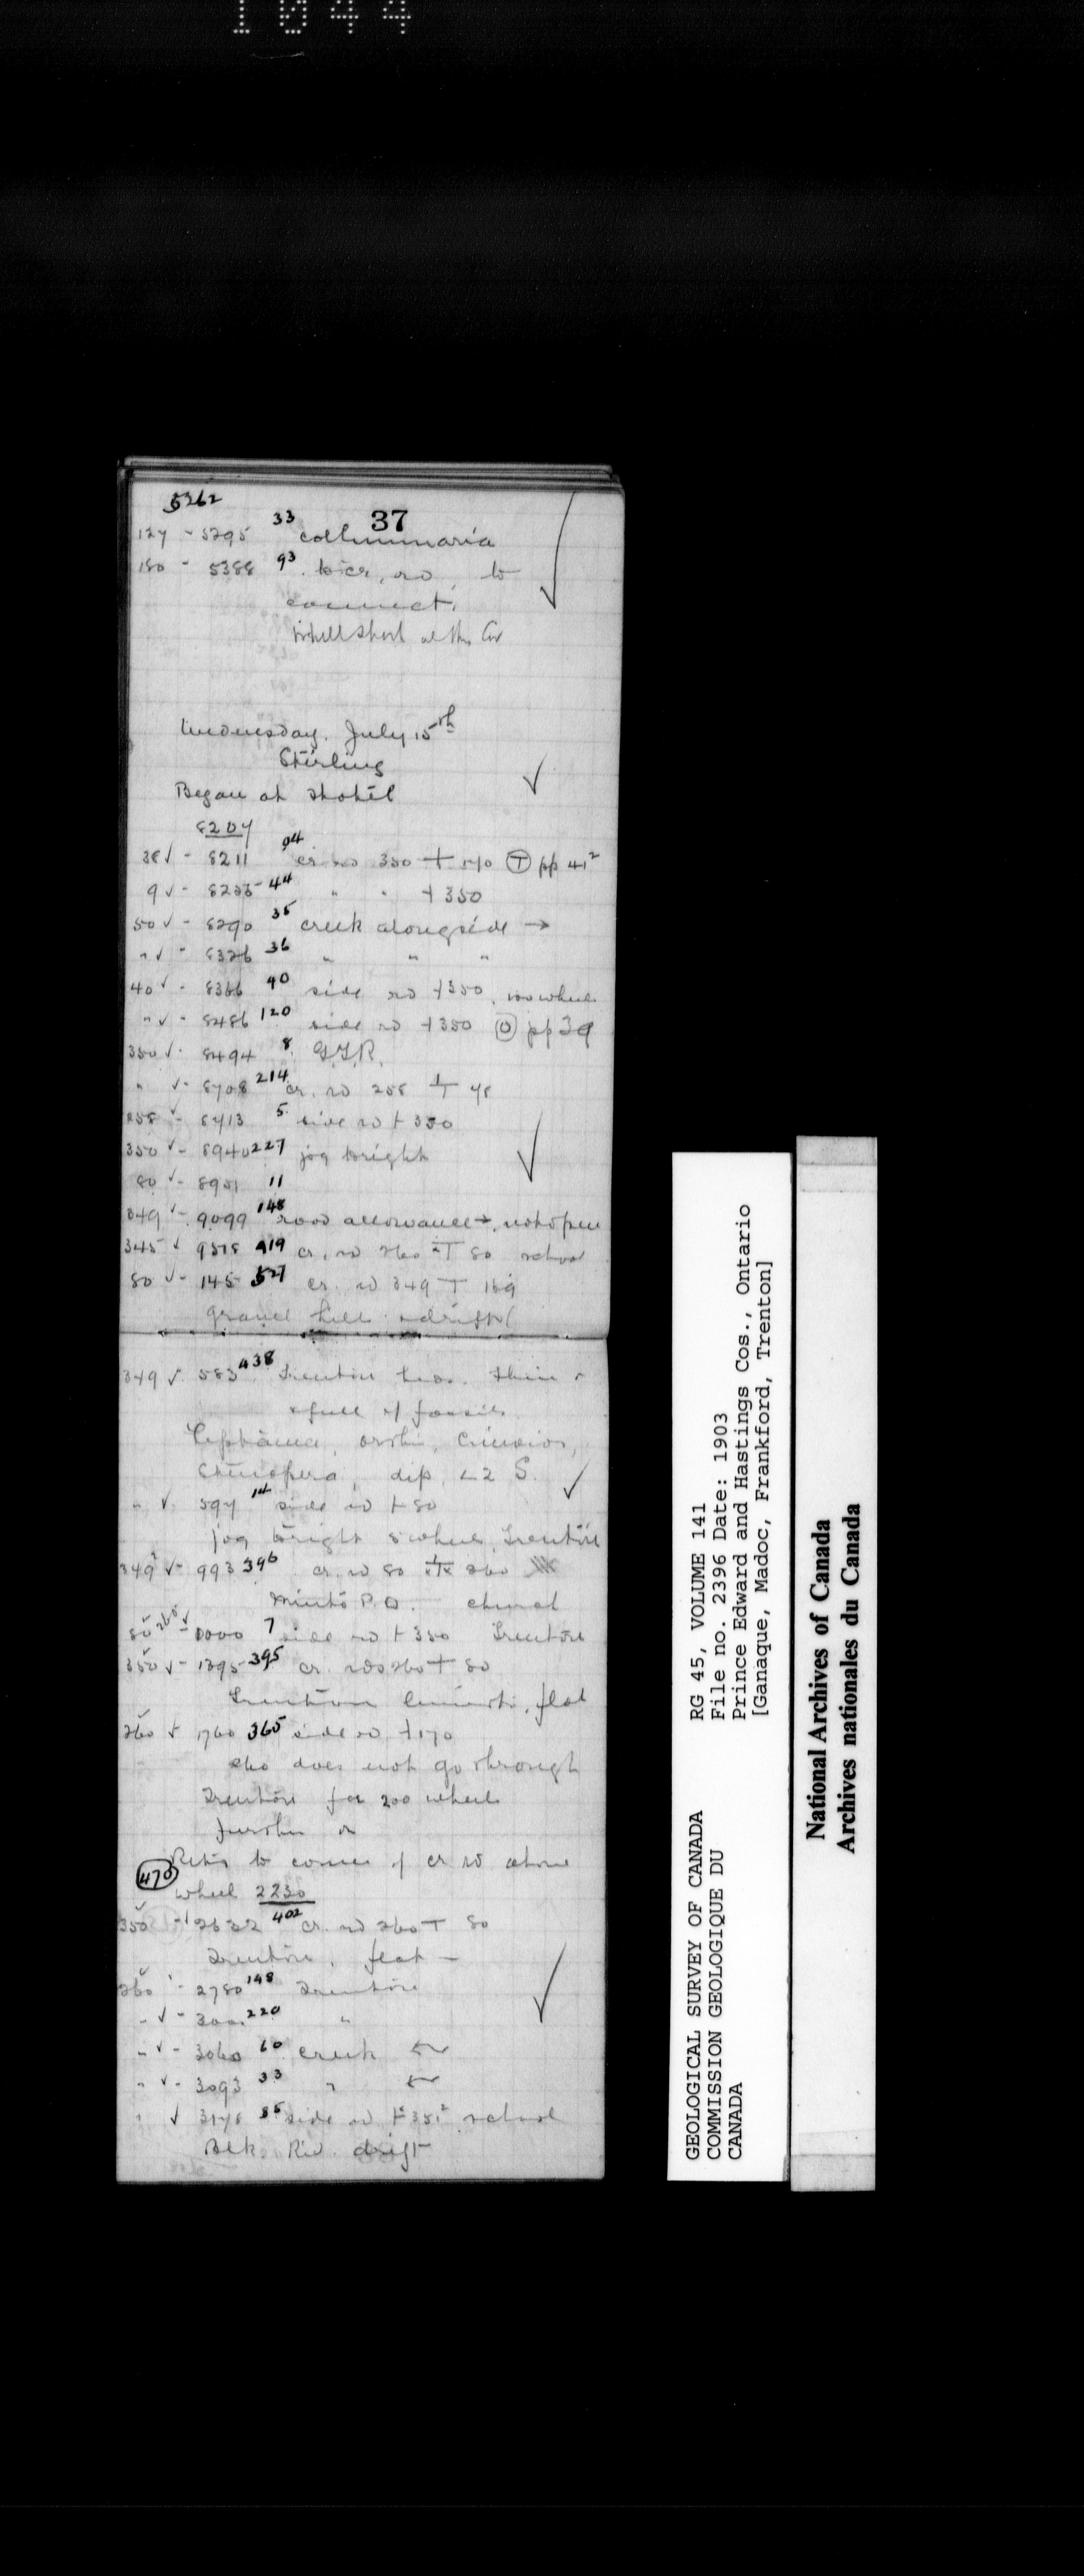 1044
5262
37
127 - 5295 33 collumnaria
180 - 5388 93 to cr. rd. to
connect.
Wednesday, July 15th
Stirling
Began at Hotel
8207
38 ✓ - 8211 04 cr rd 350 + 170 Ⓣ pp 41²
9 ✓ - 8255 44 " " + 350
50 ✓ - 8290 35 creek alongside →
" ✓ - 8326 36 " " "
40 ✓ - 8366 40 side rd + 350
" ✓ - 8486 120 side rd + 350 Ⓞ pp 39
350 ✓ - 8494 8 G.T.R.
" ✓ - 8708 214 cr. rd 258 78
258 ✓ - 8713 5 side rd + 350
350 ✓ - 8940 227 jog to right
80 ✓ - 8951 11
349 ✓ - 9099 148 road allowance →, not open
345 ✓ 9518 419 cr. rd 260 T 80 school
80 ✓ - 145 527 cr. rd 349 T 169
gravel hill drift
349 ✓ 583 438 Trenton
& full of fossils
dip ∠2 S.
" ✓ 597 14 side rd + 80
jog to right 5 wheel, Trenton
349 ✓ - 993 396 cr. rd 80 260
Minto P.O. church
80 260 ✓ - 1000 7 side rd + 350 Trenton
350 ✓ - 1395 395 cr. rds 260 + 80
Trenton flat
260 ✓ 1760 365 side rd + 170
also does not go through
Trenton for 200 wheel
further on
Retn to corner of cr rd above
470
wheel 2230
350 - 2632 402 cr. rd 260 T 80
Trenton, flat —
260 - 2780 148 Trenton
" ✓ - 3000 220 "
" ✓ - 3060 60 creek ←
" ✓ - 3093 33 " ←
" ✓ 3178 85 side rd + 351² school
Blk. Riv. drift
GEOLOGICAL SURVEY OF CANADA
COMMISSION GEOLOGIQUE DU
CANADA
RG 45, VOLUME 141
File no. 2396 Date: 1903
Prince Edward and Hastings Cos., Ontario
[Ganaque, Madoc, Frankford, Trenton]
National Archives of Canada
Archives nationales du Canada